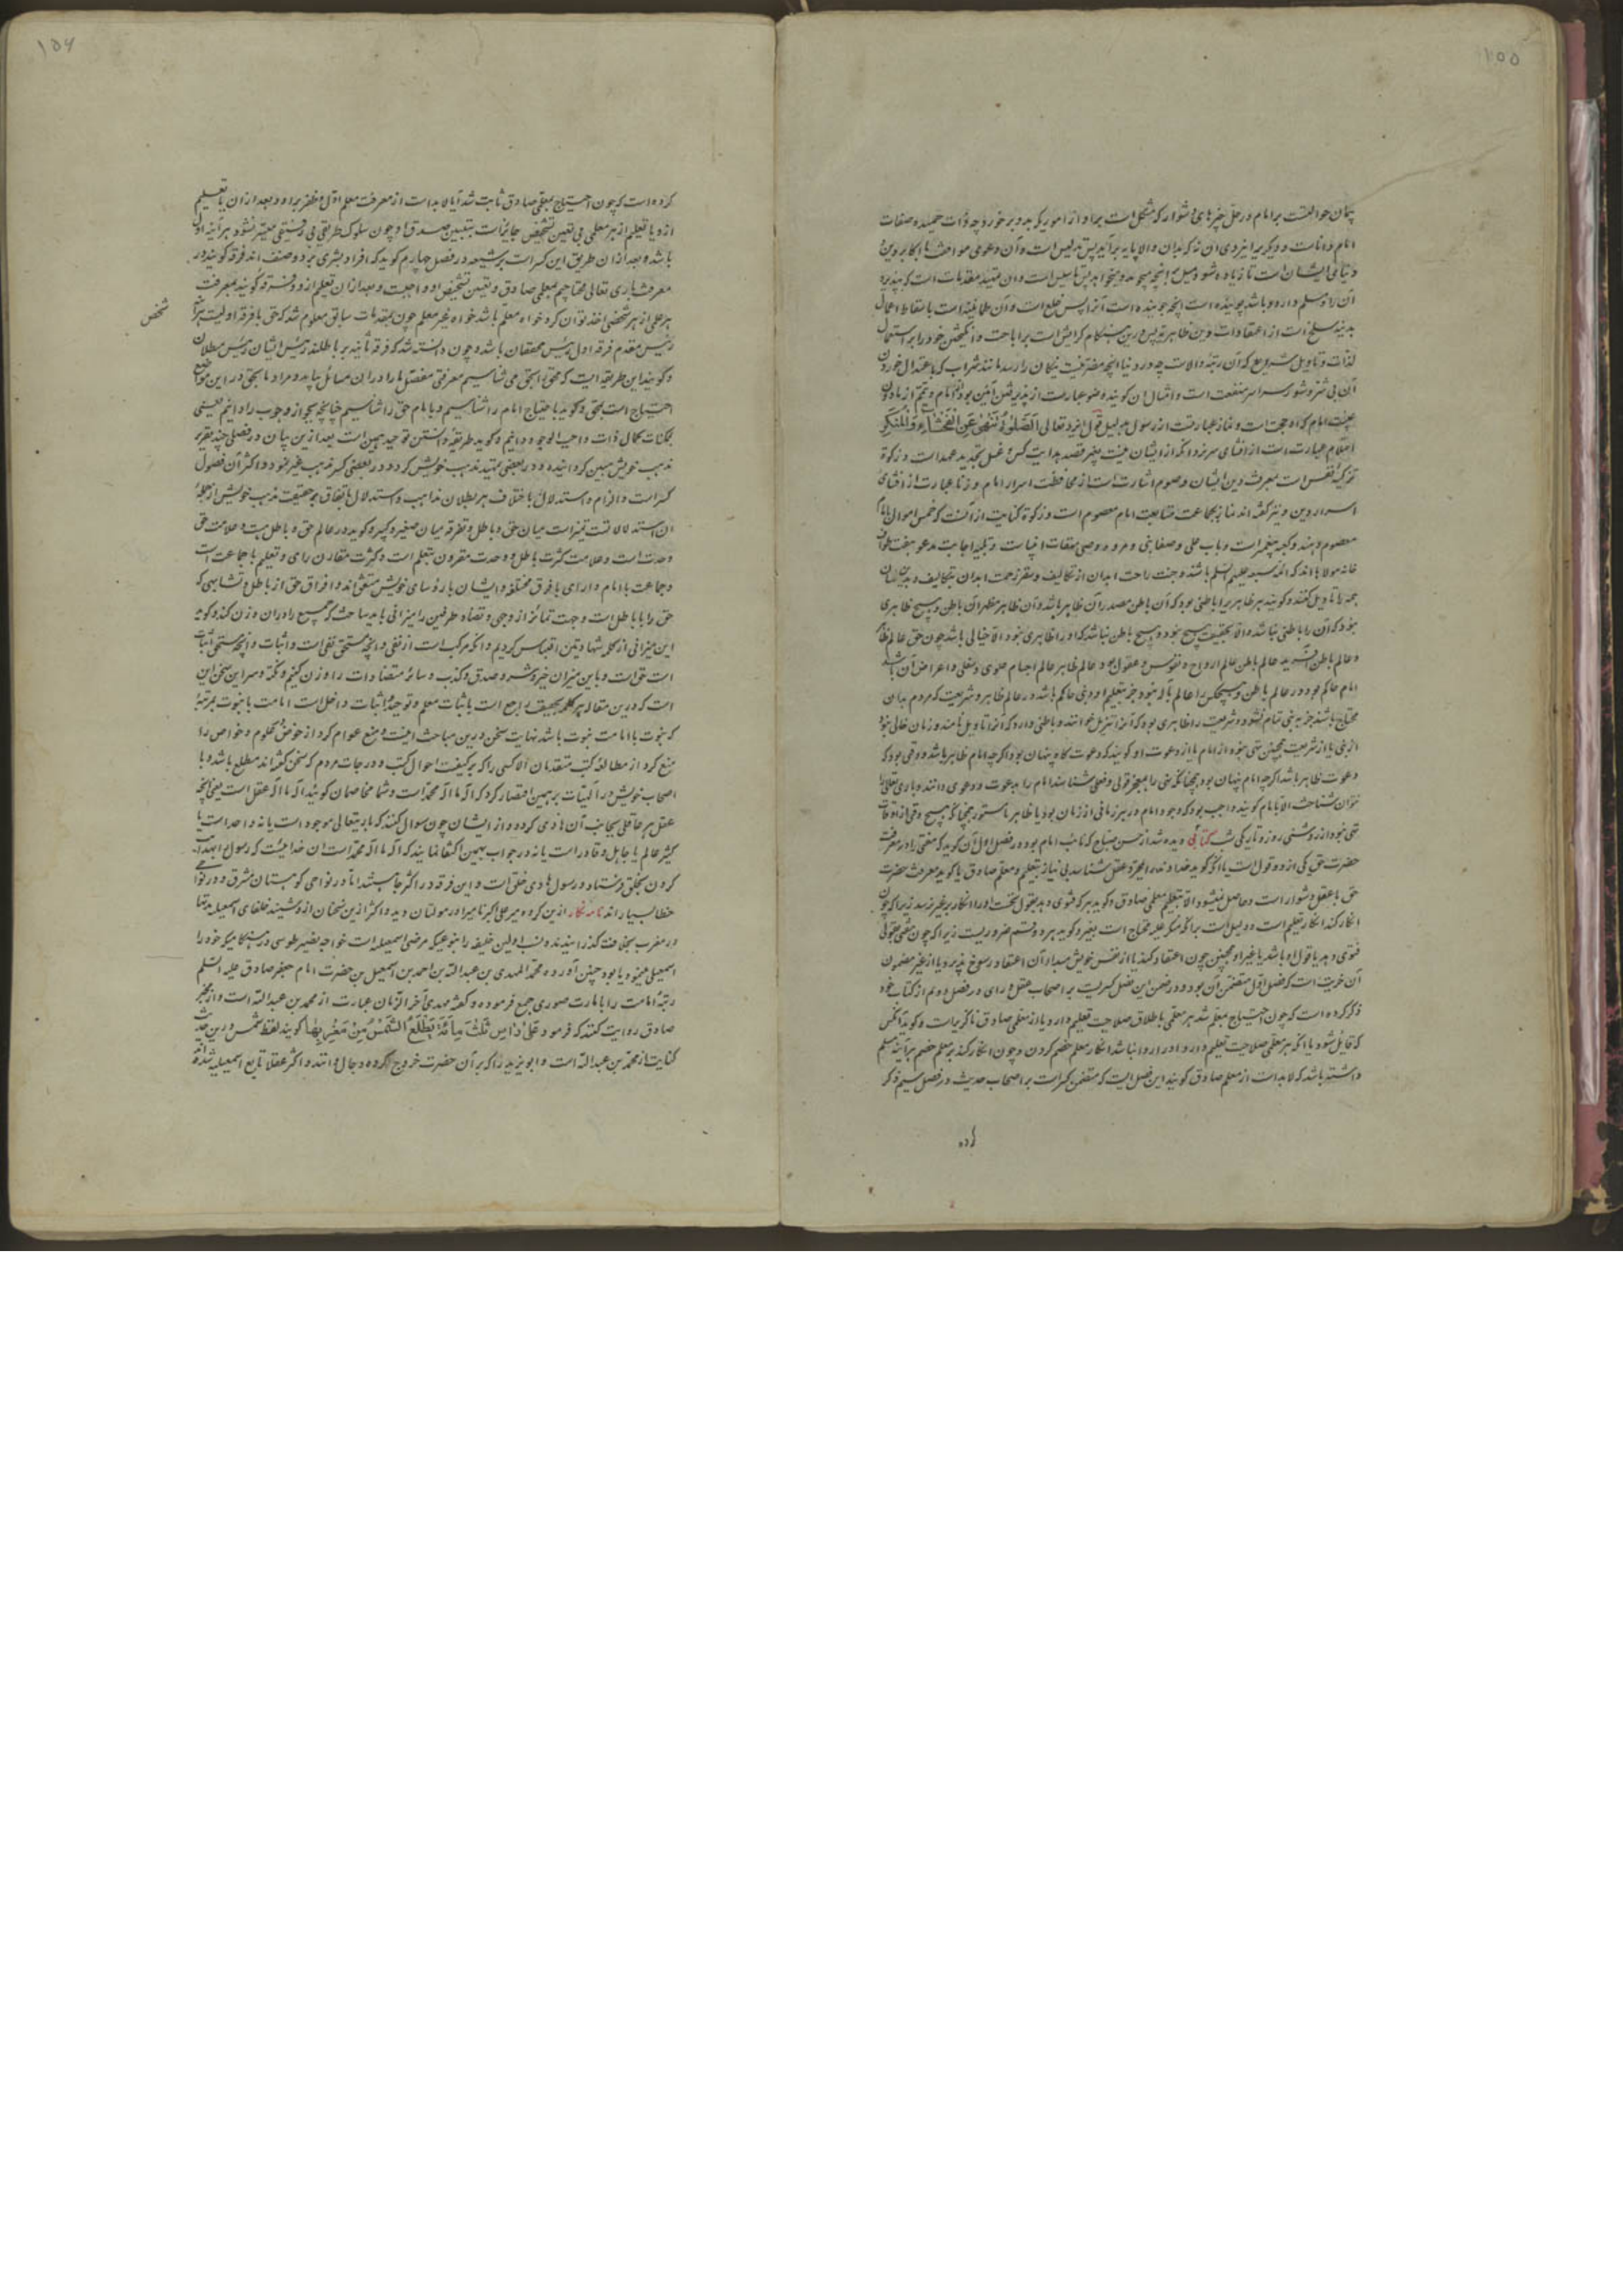 ۱۵۵
پیمان حوالتست بر امام در حل چیزهای دشوار که مشکل است بر او از اموریکه بدو بر خورد چه ذات حمیده صفات
امام داناست و دیگر
دنیائی ایشان است تا زیاده شود میل
آن را و مسلم دارد و باشد جوینده است آنچه جوینده است آنرا پس خلع است و آن طمانینه است باسقاط اعمال
بدنیه سلخ است از اعتقادات
لذات و تاویل شریع که آن رتبهٔ والاست چه در دنیا آنچه هست نیکان را رسد مانند شراب که باعتدال خوردن
آن بی شر و شور سراسر منفعت است و امثال آن گویند وضو عبارت از پذیرفتن آئین بود از امام و تیمم از ماذون
غیبت امام که او حجت است و نماز عبارتست از رسول بدلیل قول ایزد تعالی الصَّلوٰةَ تَنْهیٰ عَنِ الْفَحْشَاءِ وَالْمُنْکَرِ
احتلام عبارت است از افشای سر نزد آنکه از ایشان نیست بغیر قصد بدایت کس و غسل تجدید عهد است و زکوة
تزکیهٔ نفس است بمعرفت دین ایشان و صوم اشارت است از محافظت اسرار امام و زنا عبارت از افشای
اسرار دین و نیز گفته اند نماز بجماعت متابعت امام معصوم است و زکوة کنایت از آنست که خمس اموال بامام
معصوم دهند و کعبه پیغمبر است و باب علی و صفا نبی و مروه وصی میقات
خانه مولا با اند که ائمه سبعه علیهم السلم باشند و جنت راحت ابدان از تکالیف و سقر زحمت ابدان بتکالیف و بدین سان
همه را تاویل کنند و گویند هر ظاهر را باطنی بود که آن باطن مصدر آن ظاهر باشد و آن ظاهر مظهر آن باطن و هیچ ظاهری
نبود که آن را باطنی نباشد و الا بحقیقت هیچ نبود و هیچ باطن نباشد که او را ظاهری نبود الا خیالی باشد چون حق عالم ظاهر
و عالم باطن آفرید عالم باطن عالم ارواح و نفوس و عقول بود و عالم ظاهر عالم اجسام علوی و سفلی و اعراض آن باشد
امام حاکم بود در عالم باطن و هیچکس را عالم باله نبود جز بتعلیم او و نبی حاکم باشد در عالم ظاهر و شریعت که مردم بدان
محتاج باشند جز به نبی تمام نشود و شریعت را ظاهری بود که آنرا تنزیل خوانند و باطنی دارد که آنرا تاویل نامند و زمان خالی نبود
از نبی یا از شریعت همچنین تهی نبود از امام یا از دعوت او گویند که دعوت گاه پنهان بود اگرچه امام ظاهر باشد و وقتی بود که
دعوت ظاهر باشد اگرچه امام پنهان بود همچنانکه نبی را بمعجز قولی و فعلی شناسند امام را بدعوت و دعوی دانند و باری تعالی را
نتوان شناخت الا بامام گویند واجب بود که وجود امام در هر زمانی از زمان بود یا ظاهر یا مستور همچنانکه هیچ وقتی از اوقات
تهی نبود از روشنی روز و تاریکی شب کتابی دیده شد از حسن صباح که نائب امام بود و در فصل اول آن گوید که مفتی را در معرفت
حضرت حق یکی از دو قول است یا آنکه گوید خداوند را بمجرد عقل شناسد بی نیاز بتعلیم و معلم صادق یا گوید معرفت حضرت
حق با عقل دشوار است و حاصل نمیشود الا بتعلیم معلمی صادق و گوید هر که فتوی دهد بقول نخست او را انکار بر غیر نرسد زیرا که چون
انکار کند انکار تعلیم است و دلیل است بر آنکه منکر علیه محتاج است بغیر و گوید هر دو قسم ضروریست زیرا که چون مفتی بقولی
فتوی دهد یا قول او باشد یا غیر او همچنین چون اعتقاد کند یا از نفس خویش مبدا آن اعتقاد رسوخ پذیرد یا از غیر مضمون
آن خربت است که فصل اول متضمن آن بود و در ضمن این فصل کسریست بر اصحاب عقل و رای در فصل دویم از کتاب خود
ذکر کرده است که چون احتیاج معلم شد هر معلمی باطلاق صلاحیت تعلیم دارد یا از معلمی صادق ناگزیر است و گوید آنکس
که قایل شود با آنکه هر معلمی صلاحیت تعلیم دارد او را روا نباشد انکار معلم خصم کردن و چون انکار کند بر معلم خصم هر آینه مسلم
داشته باشد که لابد است از معلم صادق گویند این فصل ایست که متضمن کسر است بر اصحاب حدیث و در فصل سیم ذکر
کرده
۱۵۶
کرده است که چون احتیاج بمعلمی صادق ثابت شد آیا لابد است از معرفت معلم اول و ظفر بر او و بعد از آن یا تعلیم
ازو یا تعلم از هر معلمی بی تعیین تشخیص جایز است بتبیین صدق او چون سلوک طریقی بی رفیقی میسر نشود هر آینه اول
باشد و بعد از آن طریق این کسر است بر شیعه در فصل چهارم گوید که افراد بشری بر دو صنف اند فرقه گویند در
معرفت باری تعالی محتاجیم بمعلمی صادق و تعیین تشخیص او واجبست و بعد از آن تعلم ازو و فرقه گویند بمعرفت
هر علمی از هر شخصی اخذ توان کرد خواه معلم باشد خواه غیر معلم چون بمقدمات سابق معلوم شد که حق با فرقه اولیست هر آینه
شخص
رئیس مقدم فرقه اول رئیس محققان باشد و چون دانسته شد که فرقه ثانیه بر باطلند رئیس ایشان رئیس مبطلان
و گویند این طریقه ایست که محق را بحق می شناسیم معرفتی مفصل ما را در آن مسائل بباید و مراد ما بحق در این مواضع
احتیاج است بحق و گوید باحتیاج امام را شناسیم و بامام حق را شناسیم چنانچه بجواز وجوب را دانیم یعنی
بممکنات کمال ذات واجب الوجود دانیم و گوید طریقه دانستن توحید همین است بعد از این بیان در فصلی چند تقریر
مذهب خویش مبین گردانیده و در بعضی تمهید مذهب خویش کرد و در بعضی کسر مذهب غیر نمود و اکثر آن فصول
کسر است و الزام و استدلال باختلاف بر بطلان مذاهب و استدلال باتفاق بر حقیقت مذهب خویش از جملهٔ
آن استدلالات تمیز است میان حق و باطل و تفرقه میان صغیر و کبیر و گوید در عالم حق و باطل هست و علامت حق
وحدت است و علامت کثرت باطل و وحدت مقرون بتعلم است و کثرت مقارن رای و تعلیم با جماعت است
و جماعت با امام و آرای با فرق مختلفه و ایشان با رؤسای خویش متفق اند و افراق حق از باطل و تشابهی که
حق را با باطل است و جهت تمائز از وجهی و تضاد طرفین را میزانی باید ساخت که جمیع را در آن وزن کنند و گوید
این میزانی از کلمه شهادتین اقتباس کردیم و آنکه مرکب است از نفی و آنچه مستحق نفی است و اثبات و آنچه مستحق اثبات
است حق است و باین میزان خیر و شر و صدق و کذب و سائر متضادات را وزن کنیم و نکته و سر این سخن این
است که درین مقاله هر کلمه بحقیقت راجع است باثبات معلم و توحید و اثبات داخل است امامت با نبوت بمرتبهٔ
که نبوت با امامت نبوت باشد نهایت سخن درین مباحث اینست و منع عوام کرد از خوض علوم و خواص را
منع کرد از مطالعهٔ کتب متقدمان الا کسی را که بر کیفیت احوال کتب و درجات مردم که سخن گفته اند مطلع باشد و با
اصحاب خویش در الهیات بر همین اقتصار کرد که اله ما اله محمد است و شما مخاصمان گویند اله ما اله عقل است یعنی آنچه
عقل هر عاقلی بجانب آن هادی گردد و از ایشان چون سوال کنند که باریتعالی موجود است یا نه واحد است یا
کثیر عالم یا جاهل و قادر است یا نه در جواب بهمین اکتفا نمایند که اله ما اله محمد است آن خدائیست که رسول
کردن بخلق فرستاد و رسول هادی خلق است و این فرقه در اکثر جا هستند اما در نواحی کوهستان مشرق و در نواحی
خطا بسیار اند نامه نگار ازین گروه میر علی اکبر نام مردی را در مولتان دید و اکثر ازین سخنان ازو شنید خلفای اسمعیلیه مدتها
در مغرب بخلافت گذرانیدند و نسب اولین خلیفه را بنوعیکه مرضی اسمعیلیه است خواجه نصیر طوسی در هنگامیکه خود را
اسمعیلی مینمود یا بود چنین آورده محمد المهدی بن عبدالله بن احمد بن اسمعیل بن حضرت امام جعفر صادق علیه السلم
رتبهٔ امامت را با امارت صوری جمع فرموده و گفته مهدی آخر الزمان عبارت از محمد بن عبدالله است و از مخبر
صادق روایت کنند که فرمود عَلیٰ رَاسِ ثَلٰثَ مِائَةٍ تَطْلُعُ الشَّمْسُ مِنْ مَغْرِبِهَا گویند لفظ شمس درین حدیث
کنایت از محمد بن عبدالله است و ابو یزید را که بر آن حضرت خروج کرده دجال دانند و اکثر عقلا تابع اسمعیلیه شده اند